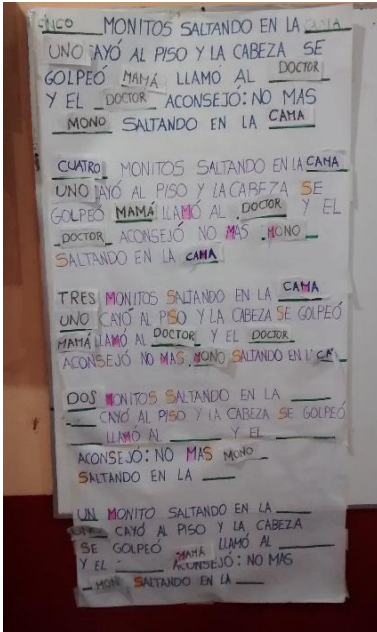 CINCO MONITOS SALTANDO EN LA CAMA
UNO CAYÓ AL PISO Y LA CABEZA SE
GOLPEÓ MAMÁ LLAMÓ AL DOCTOR
Y EL DOCTOR ACONSEJÓ: NO MAS
MONO SALTANDO EN LA CAMA
CUATRO MONITOS SALTANDO EN LA CAMA
UNO CAYÓ AL PISO Y LA CABEZA SE
GOLPEÓ MAMÁ LLAMÓ AL DOCTOR Y EL
DOCTOR ACONSEJÓ NO MAS MONO
SALTANDO EN LA CAMA
TRES MONITOS SALTANDO EN LA CAMA
UNO CAYÓ AL PISO Y LA CABEZA SE GOLPEÓ
MAMÁ LLAMÓ AL DOCTOR Y EL DOCTOR
ACONSEJÓ NO MAS MONO SALTANDO EN L CA
DOS MONITOS SALTANDO EN LA ____
____ CAYÓ AL PISO Y LA CABEZA SE GOLPEÓ
____ LLAMÓ AL ____ Y EL ____
ACONSEJÓ: NO MAS MONO
SALTANDO EN LA ____
UN MONITO SALTANDO EN LA ____
UNO CAYÓ AL PISO Y LA CABEZA
SE GOLPEÓ MAMÁ LLAMÓ AL ____
Y EL ____ ACONSEJÓ: NO MAS
MON SALTANDO EN LA ____